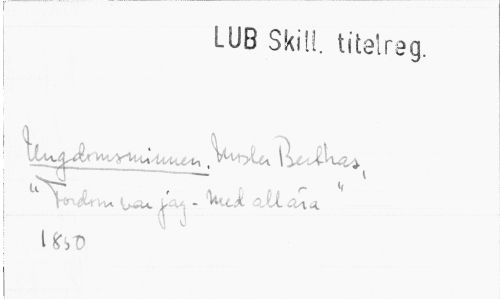 LUB Skill. titelreg.
Ungdomsminnen. Moster Berthas,
"Fordom var jag - med all ära"
1850